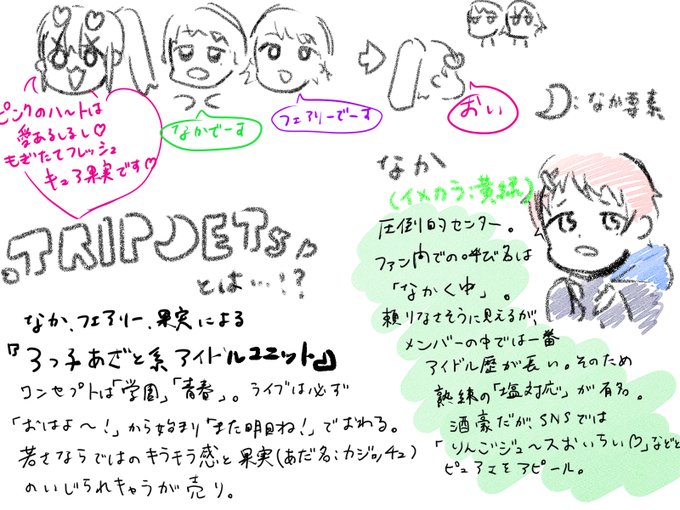 ピンクのハートは
愛あるしるし♡
もぎたてフレッシュ
キュア果実です♡
つく
なかでーす
フェアリーでーす
おい
☽:なか要素
TRIP☽ETs
とは…!?
なか、フェアリー、果実による
『3つ子あざと系アイドルユニット』
コンセプトは「学園」「青春」。ライブは必ず
「おはよ〜!」から始まり「また明日ね!」でおわる。
若さならではのキラキラ感と果実(あだ名:カジッチュ)
のいじられキャラが売り。
なか
(イメカラ:黄緑)
圧倒的センター。
ファン内での呼び名は
「なかくゅ」。
頼りなさそうに見えるが、
メンバーの中では一番
アイドル歴が長い。そのため
熟練の「塩対応」が有名。
酒豪だが、SNSでは
「りんごジュ〜スおいちい♡」などと
ピュアさをアピール。